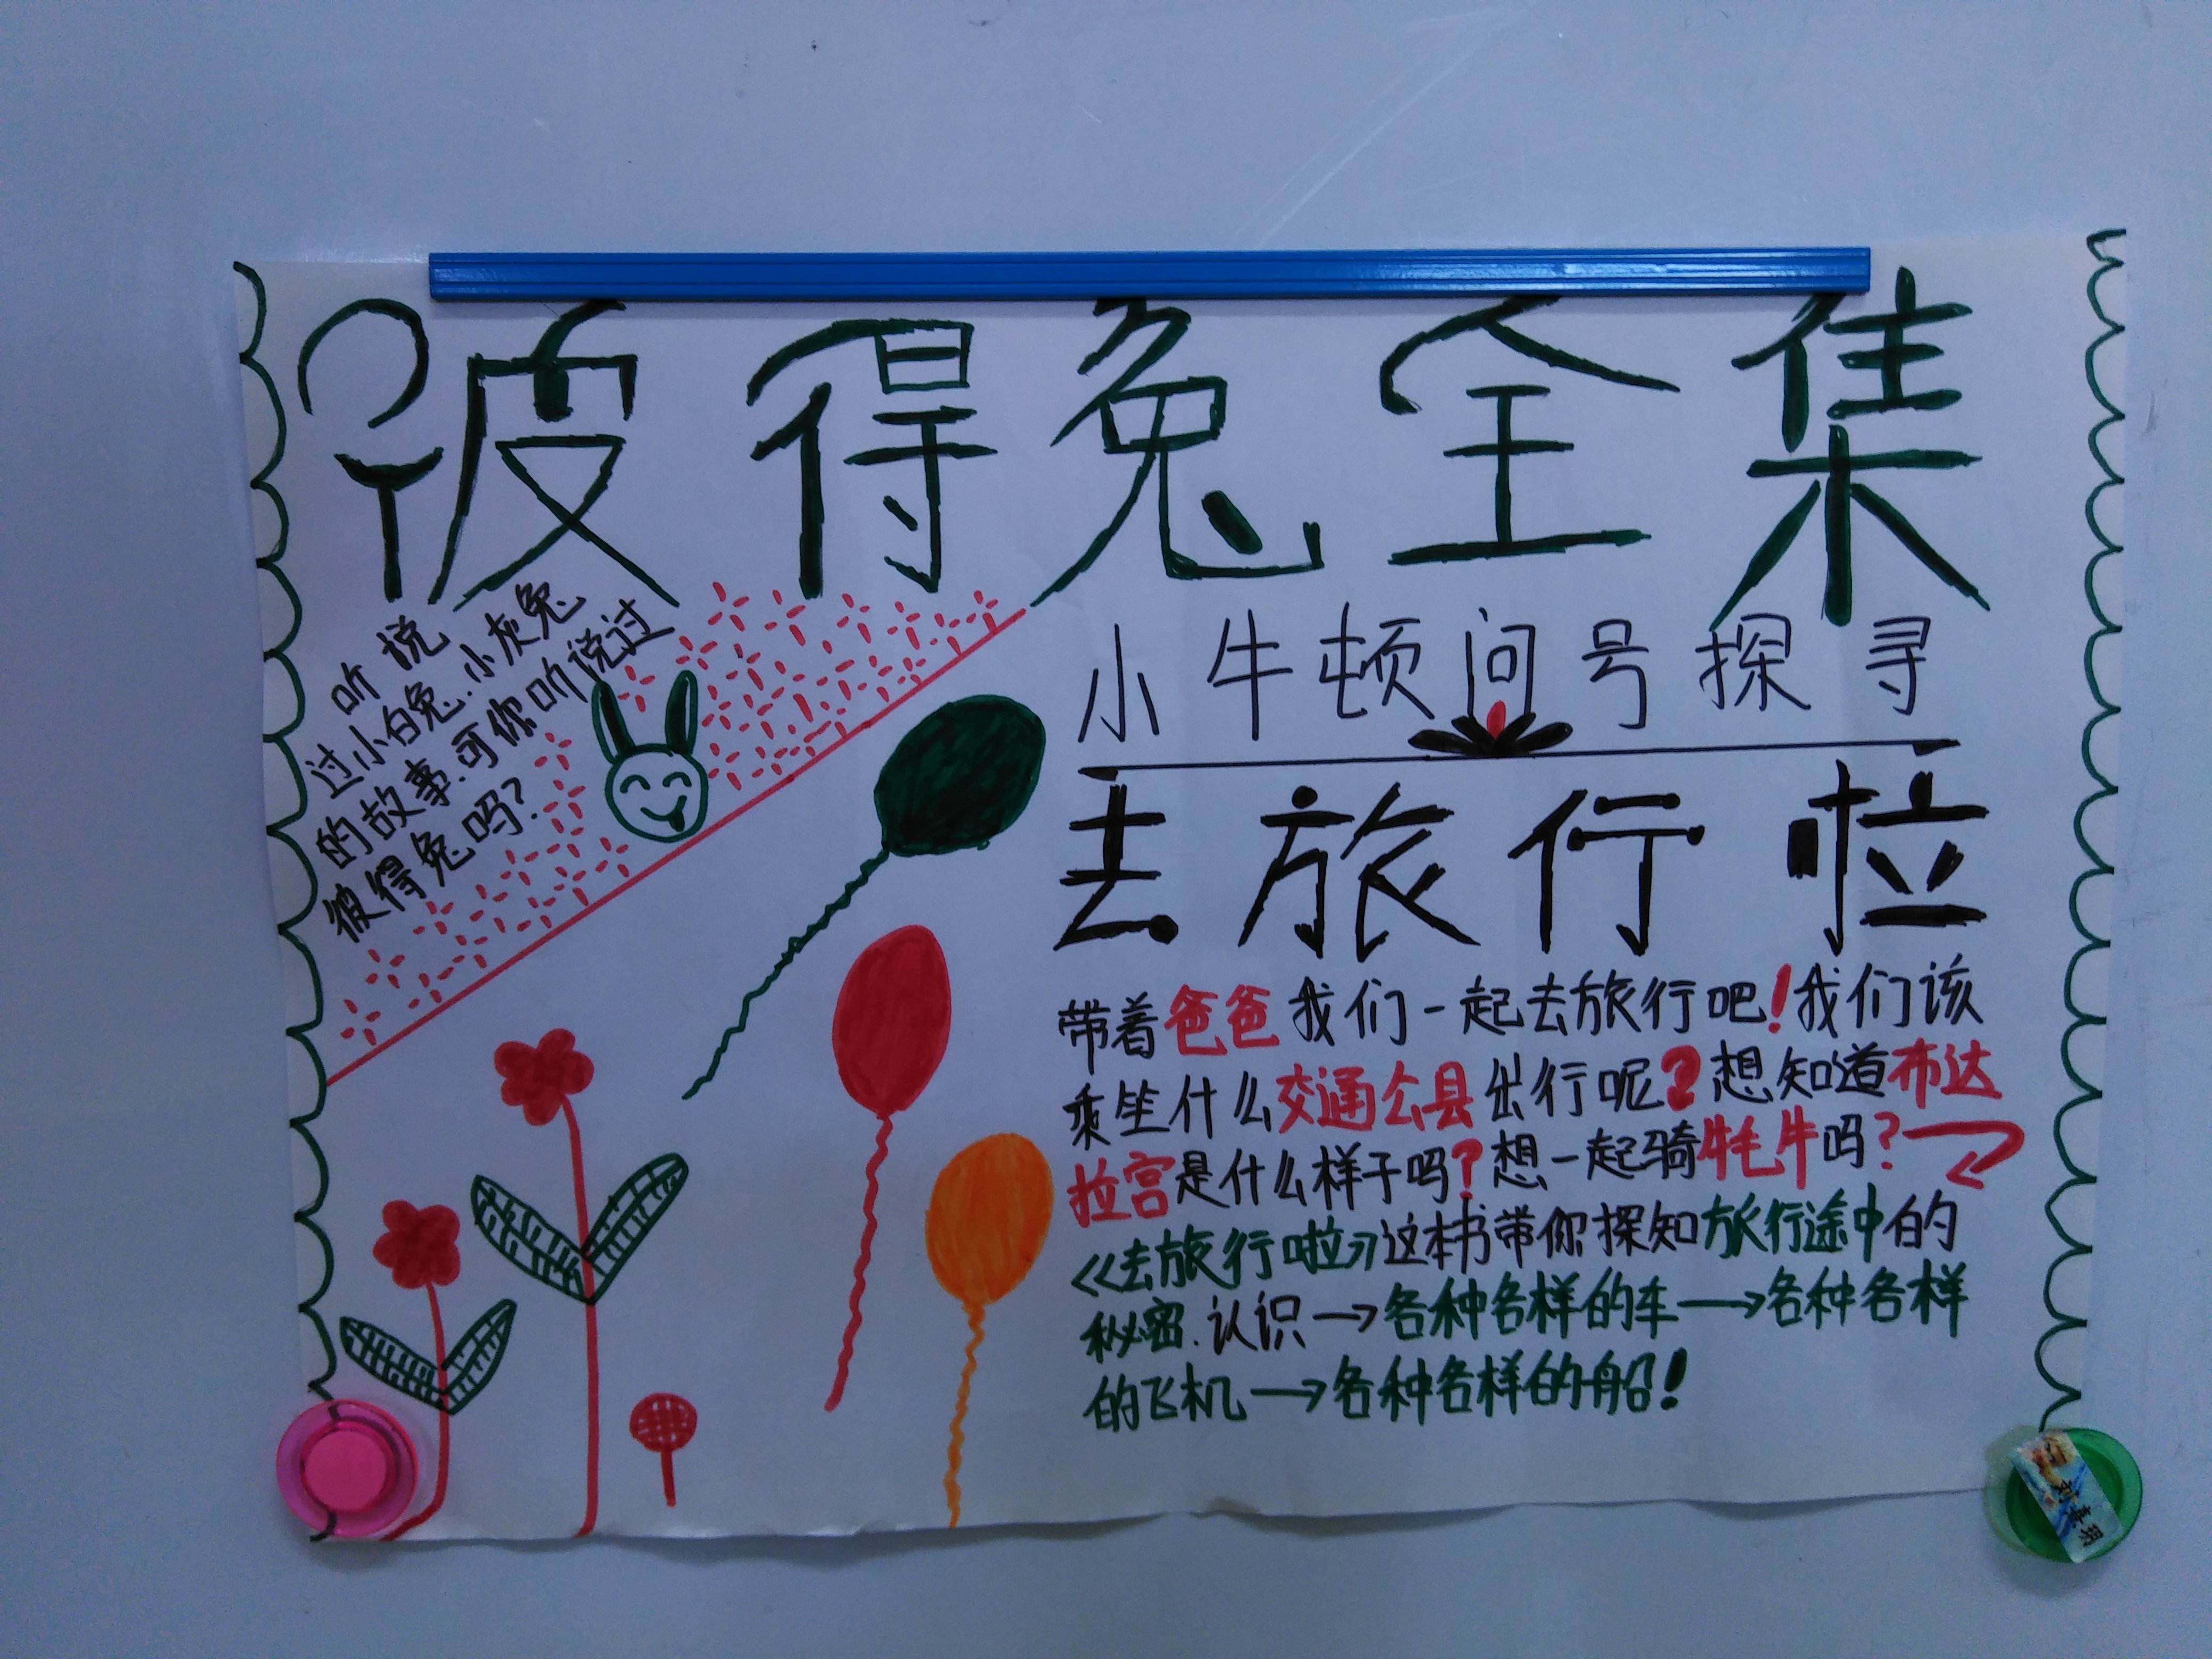 彼得兔全集
听说
过小白兔.小灰兔
的故事.可你听说过
彼得兔吗?
小牛顿问号探寻
去旅行啦
带着爸爸我们一起去旅行吧!我们该
乘坐什么交通公具出行呢?想知道布达
拉宫是什么样子吗?想一起骑牦牛吗?
《去旅行啦》这本书带你探知旅行途中的
秘密.认识→各种各样的车→各种各样
的飞机→各种各样的船!